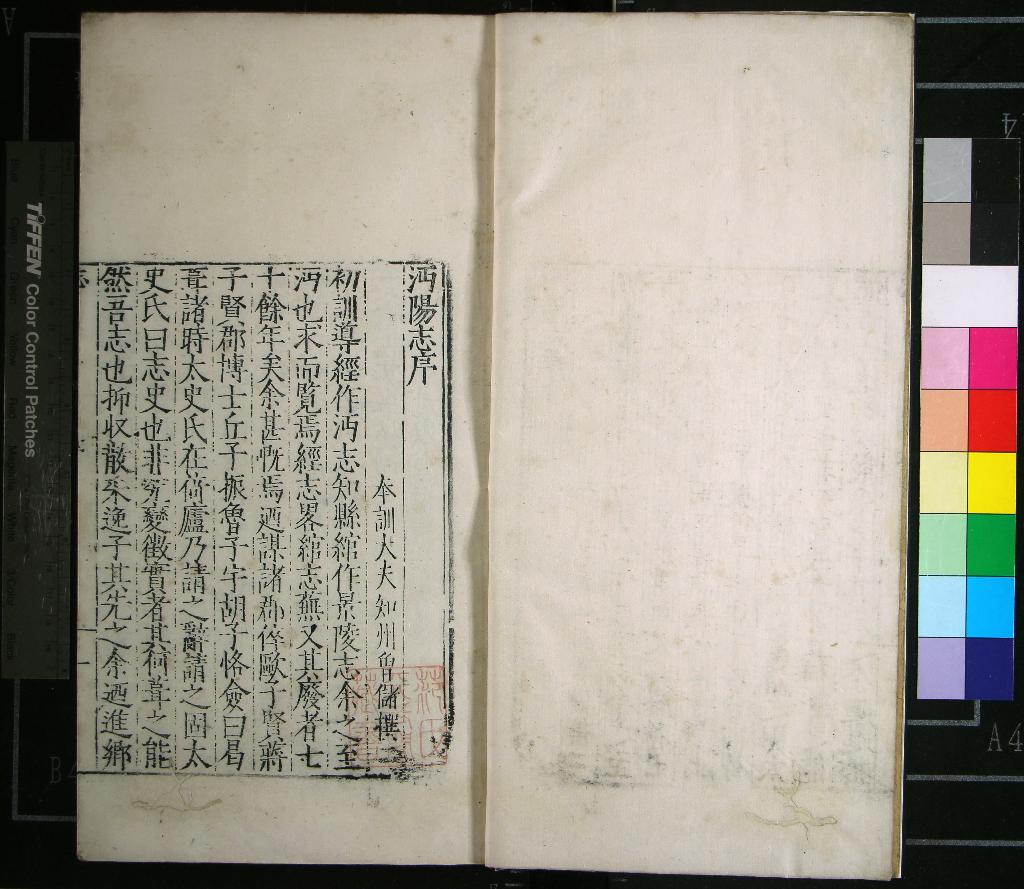 沔陽志序
奉訓大夫知州曾儲撰
初訓導經作沔志知縣綰作景陵志余之至
沔也求而覽焉經志畧綰志蕪又其廢者七
十餘年矣余甚慨焉迺謀諸郡倅歐子賢蔣
子賢郡博士丘子振魯子宇胡子恪僉曰曷
諸時太史氏在倚廬乃請之辭請之固太
史氏曰志史也非窮變徵實者其何葺之能
然吾志也抑收散采逸子其先之余迺進鄉
志
一
TIFFEN Color Control Patches
A4